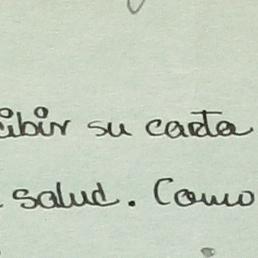 cibir su carta
salud. Como